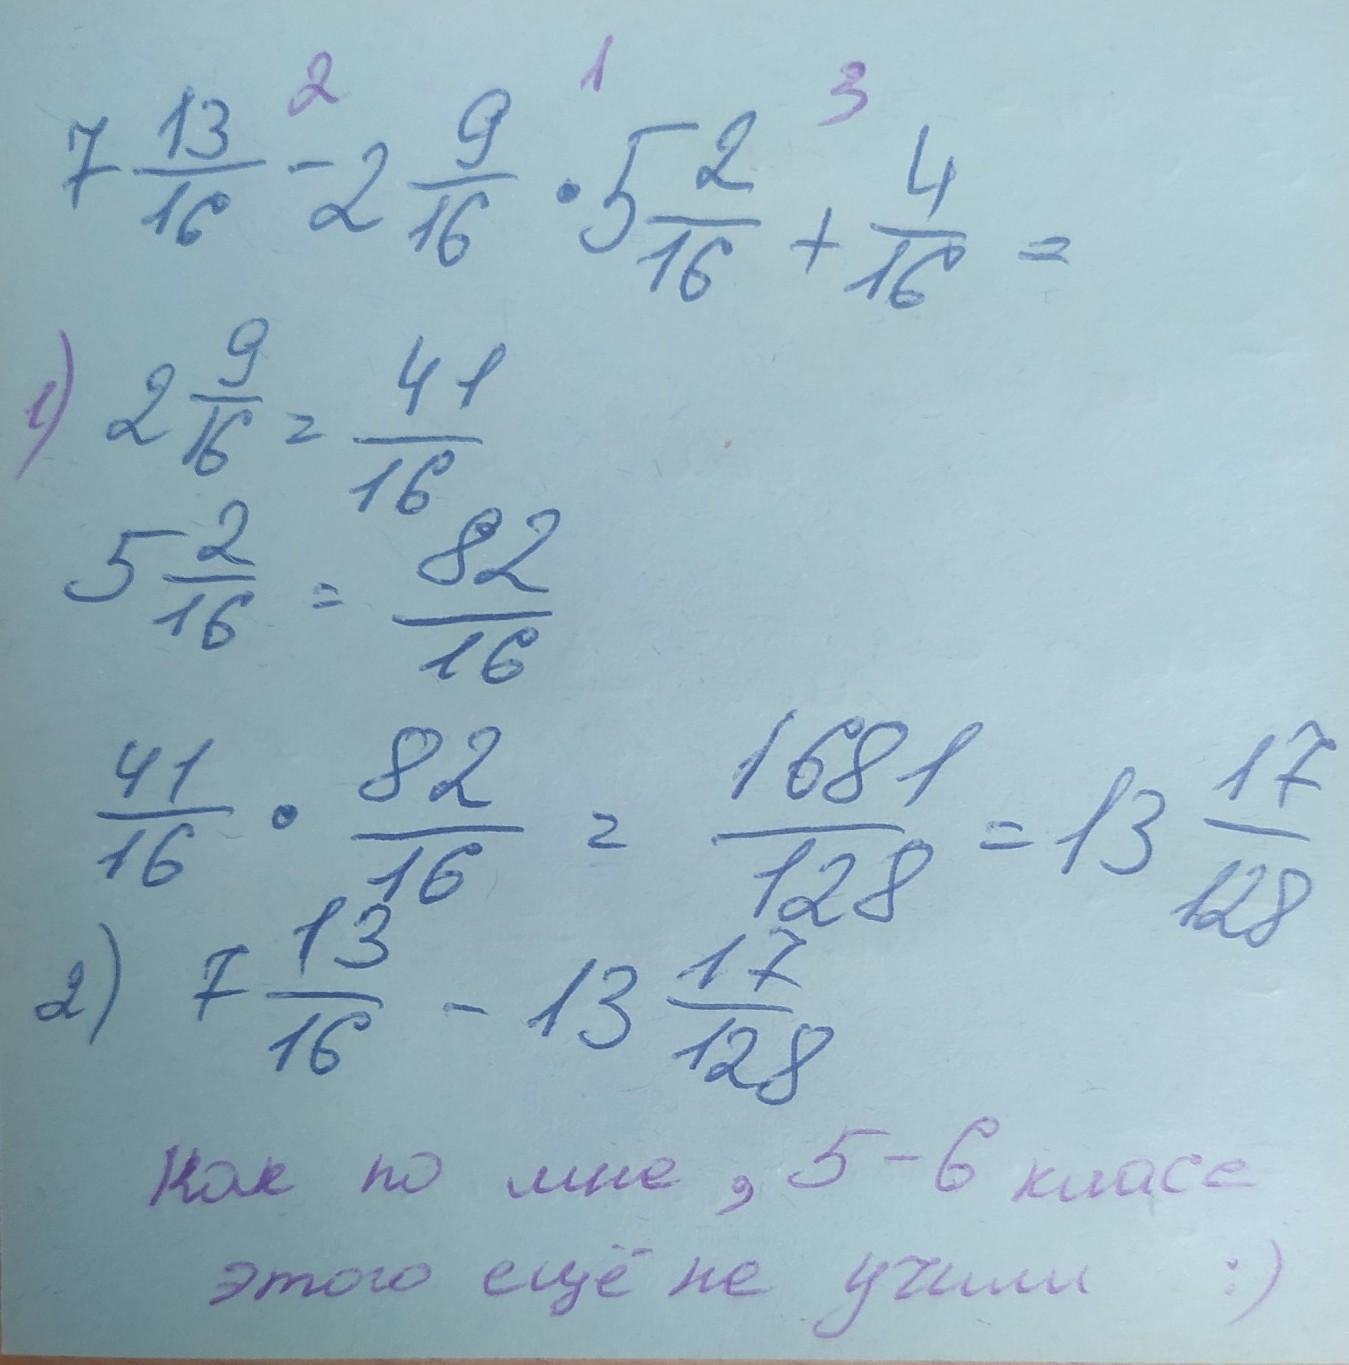 2 1 3
7 13/16 - 2 9/16 · 5 2/16 + 4/16 =
1) 2 9/16 = 41/16
5 2/16 = 82/16
41/16 · 82/16 = 1681/128 = 13 17/128
2) 7 13/16 - 13 17/128
Как по мне, 5-6 класс
этого ещё не учили :)